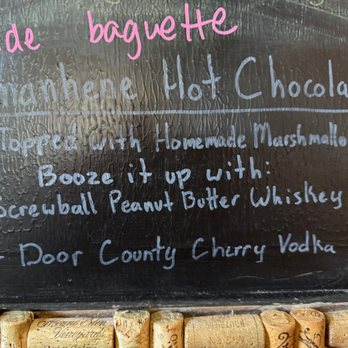 de baguette
manhene Hot Chocola
Topped with Homemade Marshmallo
Booze it up with:
Screwball Peanut Butter Whiskey
- Door County Cherry Vodka